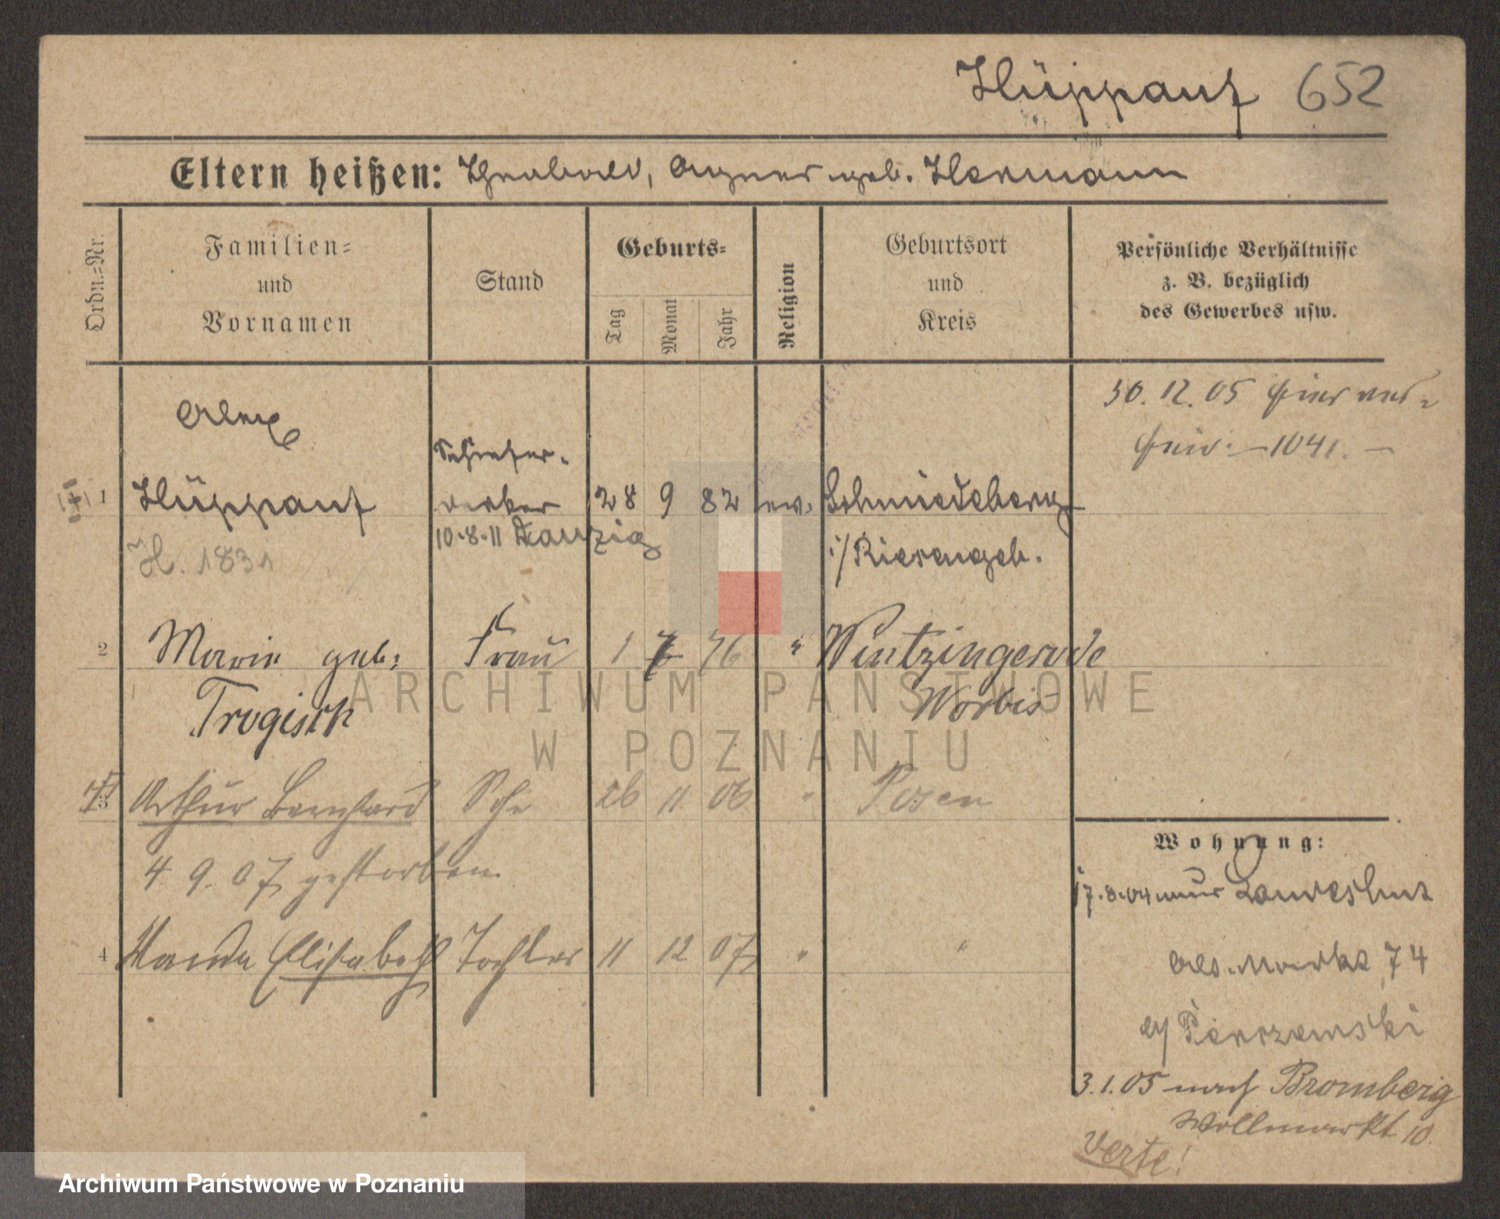 Hüppauf 652
Eltern heißen: Theobald, Agnes geb. Hermann
Ordn.=Nr.
Familien=
und
Vornamen
Stand
Geburts=
Tag
Monat
Jahr
Religion
Geburtsort
und
Kreis
Persönliche Verhältnisse
z. B. bezüglich
des Gewerbes usw.
30. 12. 05 hier
1041.
Alex
1 Hüppauf
Schiefer-
decker
28 9 82 ev. Schmiedeberg
i/Riesengeb.
10.8.11 Danzig
H. 1831
2 Marie geb. Frau 1 7 76 " Wintzingerode
Trogisch
Worbis
3 Arthur Bernhard Sohn 26 11 06 " Posen
4 9. 07 gestorben
4 Wanda Elisabeth Tochter 11 12 07 " "
Wohnung:
17.8.04 Landeshut
74
3.1.05 nach Bromberg
Wollmarkt 10.
Verte!
ARCHIWUM PAŃSTWOWE
W POZNANIU
Archiwum Państwowe w Poznaniu